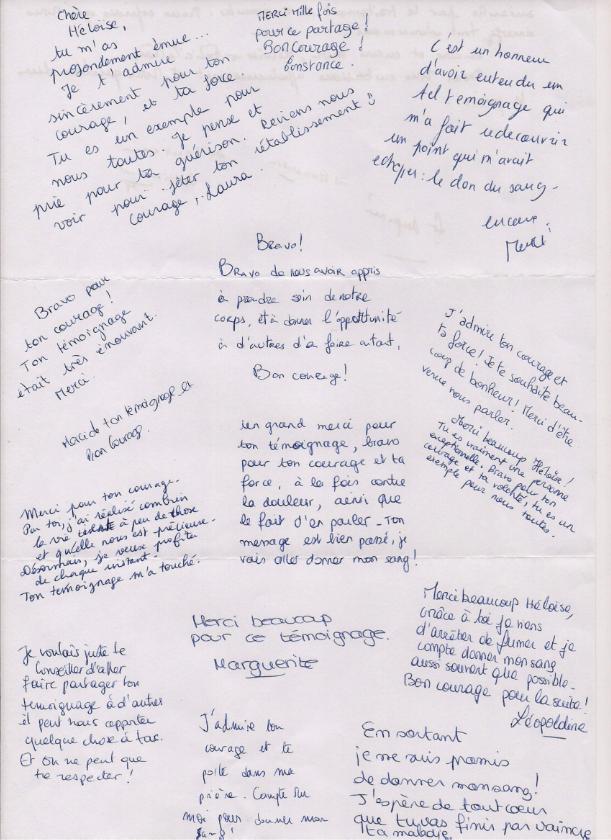 Chère
Héloïse,
tu m'as
profondément émue...
Je t'admire
sincèrement pour ton
courage, et ta force.
Tu es un exemple pour
nous toutes. Je pense et
prie pour ta guérison. Reviens nous
voir pour fêter ton rétablissement
courage, Laura.
MERCI Mille fois
pour ce partage!
Bon Courage!
Constance.
C'est un honneur
d'avoir entendu un
tel temoignage qui
m'a fait redecouvrir
un point qui m'avait
echapper : le don du sang -
encore.
Merci
Bravo!
Bravo de nous avoir appris
à prendre soin de notre
corps, et à donner l'opportunité
à d'autres d'en faire autant,
Bon courage!
Bravo pour
ton courage!
Ton témoignage
était très émouvant.
Merci
J'admire ton courage et
ta force! Je te souhaite beau-
coup de bonheur! Merci d'être
venue nous parler.
Merci de ton témoignage et
Bon Courage.
Merci beaucoup Héloïse!
Tu es vraiment une personne
exceptionnelle. Bravo pour ton
courage et ta volonté, tu es un
exemple pour nous toutes.
un grand merci pour
ton témoignage, bravo
pour ton courage et ta
force, à la fois contre
la douleur, ainsi que
le fait d'en parler - Ton
message est bien passé, je
vais aller donner mon sang!
Merci pour ton courage.
Par toi, j'ai réalisé combien
la vie à peu de chose
et qu'elle nous est précieuse.
Désormais, je veux profiter
de chaque instant.
Ton temoignage m'a touché.
Merci beaucoup
pour ce témoignage.
Marguerite
Merci beaucoup Héloïse,
Grâce à toi je viens
d'arrêter de fumer et je
compte donner mon sang
aussi souvent que possible.
Bon courage pour la suite!
Léopoldine
Je voulais juste te
Conseiller d'aller
faire partager ton
temoignage à d'autres
il peut nous apporter
quelque chose à tous.
Et on ne peut que
te respecter!
J'admire ton
courage et te
porte dans ma
prière. Compte sur
moi pour donner mon
sang!
En sortant
je me suis promis
de donner mon sang!
J'espère de tout coeur
que tu vas finir par vaincre
ta maladie